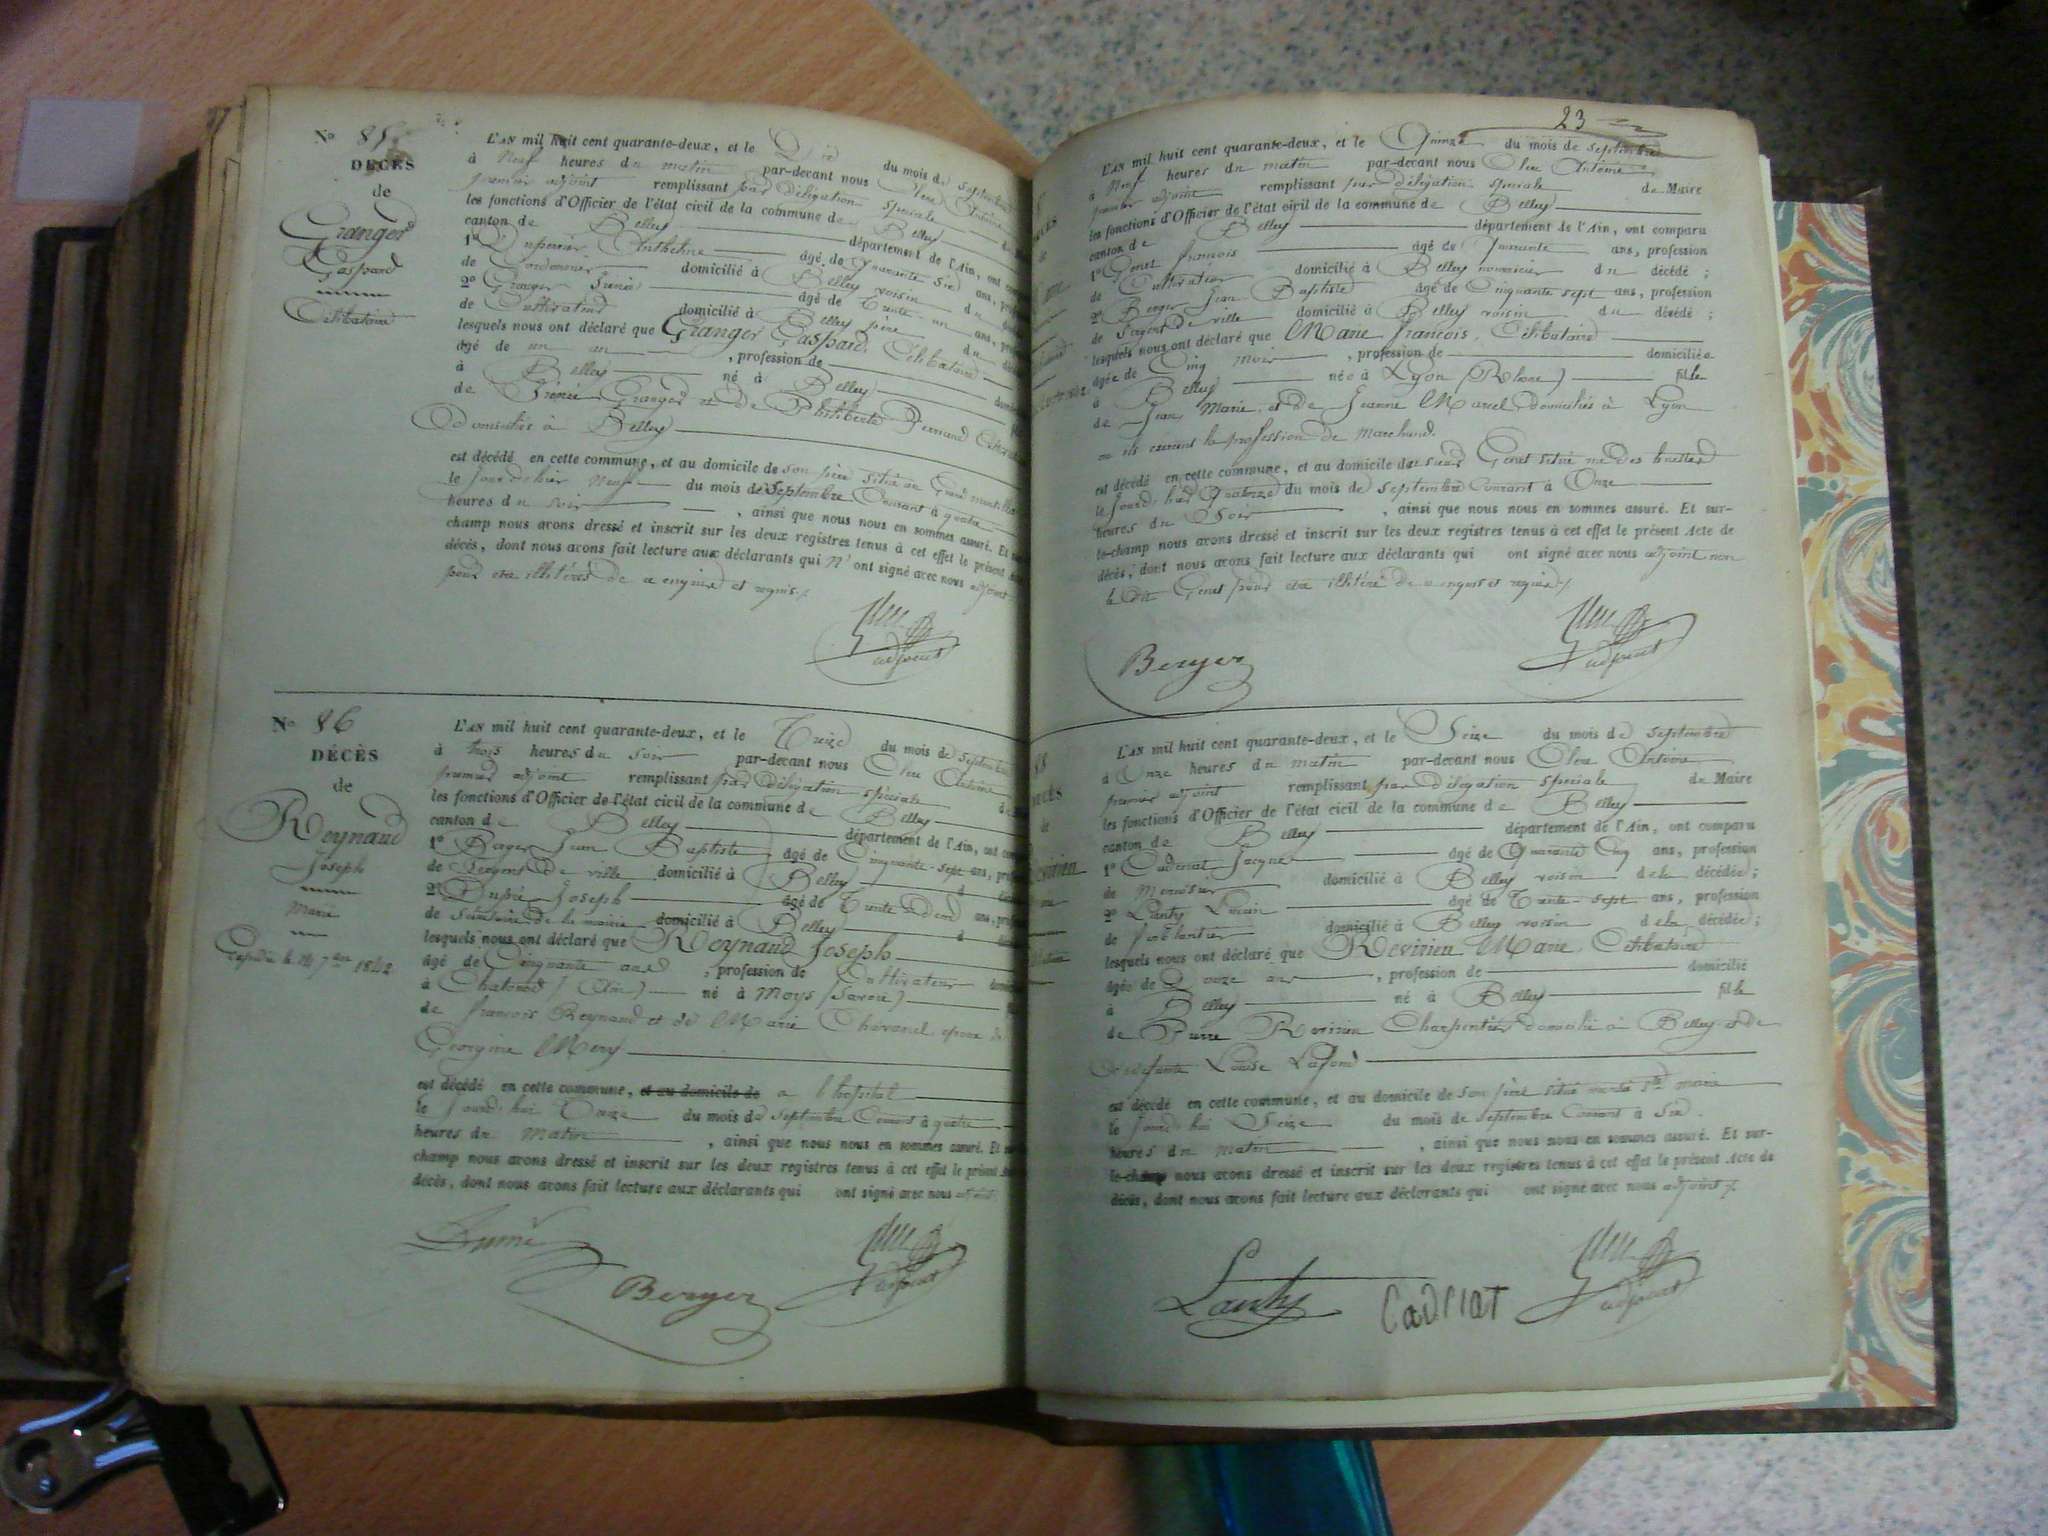 N° 85
DÉCÈS
de
Granger
Gaspard
Célibataire
L'AN mil huit cent quarante-deux, et le Dix du mois de septembre
à Neuf heures du matin par-devant nous Antoine
premier adjoint remplissant par délégation spéciale
les fonctions d'Officier de l'état civil de la commune de Belley
canton de Belley département de l'Ain, ont
1° Anthelme âgé de quarante six ans,
de Cordonnier domicilié à Belley voisin du
2° Granger âgé de Trente un ans,
de Cultivateur domicilié à Belley père du
lesquels nous ont déclaré que Granger Gaspard, Célibataire
âgé de un an , profession de
à Belley né à Belley
de Granger et de Philiberte Bernand
Domiciliés à Belley
est décédé en cette commune, et au domicile de son père situé
le jour d'hier neuf du mois de septembre Courant à quatre
heures du soir , ainsi que nous nous en sommes assuré. Et
champ nous avons dressé et inscrit sur les deux registres tenus à cet effet le présent
décès, dont nous avons fait lecture aux déclarants qui n'ont signé avec nous adjoint
pour être illitérés de ce enquis et requis ./.
adjoint
N° 86
DÉCÈS
de
Reynaud
Joseph
Marié
le 14 7bre 1842
L'AN mil huit cent quarante-deux, et le Treize du mois de septembre
à trois heures du soir par-devant nous Antoine
premier adjoint remplissant par délégation spéciale
les fonctions d'Officier de l'état civil de la commune de Belley
canton de Belley département de l'Ain, ont
1° Berger Jean Baptiste âgé de Cinquante-sept ans,
de Sergent de ville domicilié à Belley
2° Dupré Joseph âgé de Trente Deux ans,
de Secrétaire de la mairie domicilié à Belley
lesquels nous ont déclaré que Reynaud Joseph
âgé de Cinquante ans , profession de Cultivateur
à (Ain) né à (Savoie)
de François Reynaud et de Marie époux de
Georgine Mery
est décédé en cette commune, et au domicile de a l'hopital
le jourd'hui Treize du mois de septembre Courant à quatre
heures du matin , ainsi que nous nous en sommes assuré. Et
champ nous avons dressé et inscrit sur les deux registres tenus à cet effet le présent
décès, dont nous avons fait lecture aux déclarants qui ont signé avec nous adjoint
Berger
adjoint
23
L'AN mil huit cent quarante-deux, et le Quinze du mois de septembre
à Neuf heures du matin par-devant nous Antoine
premier adjoint remplissant par délégation spéciale de Maire
les fonctions d'Officier de l'état civil de la commune de Belley
canton de Belley département de l'Ain, ont comparu
1° Genet françois âgé de Quarante ans, profession
de Cultivateur domicilié à Belley nourricier du décédé ;
2° Berger Jean Baptiste âgé de Cinquante sept ans, profession
de Sergent de ville domicilié à Belley voisin du décédé ;
lesquels nous ont déclaré que Marie françois, Célibataire
âgée de Cinq mois , profession de domiciliée
à Belley née à Lyon (Rhone) fille
de Jean Marie et de Jeanne Marcel domiciliés à Lyon
ou ils exercent la profession de Marchand.
est décédé en cette commune, et au domicile du sieur Genet situé rue des
le jour d'hier Quatorze du mois de septembre Courant à Onze
heures du Soir , ainsi que nous nous en sommes assuré. Et sur-
le-champ nous avons dressé et inscrit sur les deux registres tenus à cet effet le présent Acte de
décès, dont nous avons fait lecture aux déclarants qui ont signé avec nous adjoint non
le dit Genet pour être illitéré de ce enquis et requis ./.
Berger
adjoint
88
L'AN mil huit cent quarante-deux, et le Seize du mois de septembre
à Onze heures du matin par-devant nous Antoine
premier adjoint remplissant par délégation spéciale de Maire
les fonctions d'Officier de l'état civil de la commune de Belley
canton de Belley département de l'Ain, ont comparu
1° Jacques âgé de Quarante Cinq ans, profession
de Menuisier domicilié à Belley voisin de la décédée ;
2° Lanty âgé de Trente-sept ans, profession
de ferblantier domicilié à Belley voisin de la décédée ;
lesquels nous ont déclaré que Revirien Marie, Célibataire
âgée de ans , profession de domicilié
à Belley né à Belley fille
de Pierre Revirien Charpentier domicilié à Belley et de
défunte Louise
est décédé en cette commune, et au domicile de son père situé Ste marie
le jourd'hui Seize du mois de septembre Courant à Six
heures du matin , ainsi que nous nous en sommes assuré. Et sur-
le-champ nous avons dressé et inscrit sur les deux registres tenus à cet effet le présent Acte de
décès, dont nous avons fait lecture aux déclarants qui ont signé avec nous adjoint ./.
Lanty
adjoint